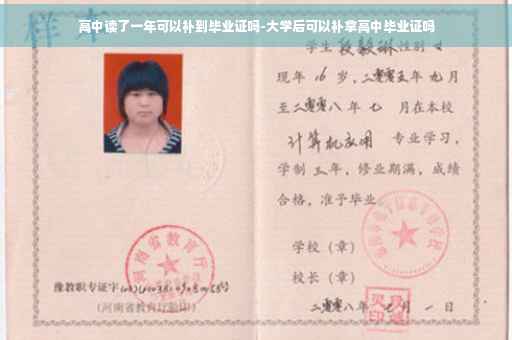 高中读了一年可以补到毕业证吗-大学后可以补拿高中毕业证吗
样本
学生 段毅琳 性别 女
现年 16 岁，二零零五年 九 月
至二零零八年 七 月在本校
计算机应用 专业学习，
学制 三 年，修业期满，成绩
合格，准予毕业
学校（章）
校长（章）
河南省教育厅
豫教职专证字
（河南省教育厅验印）
二零零八年 七 月 一 日